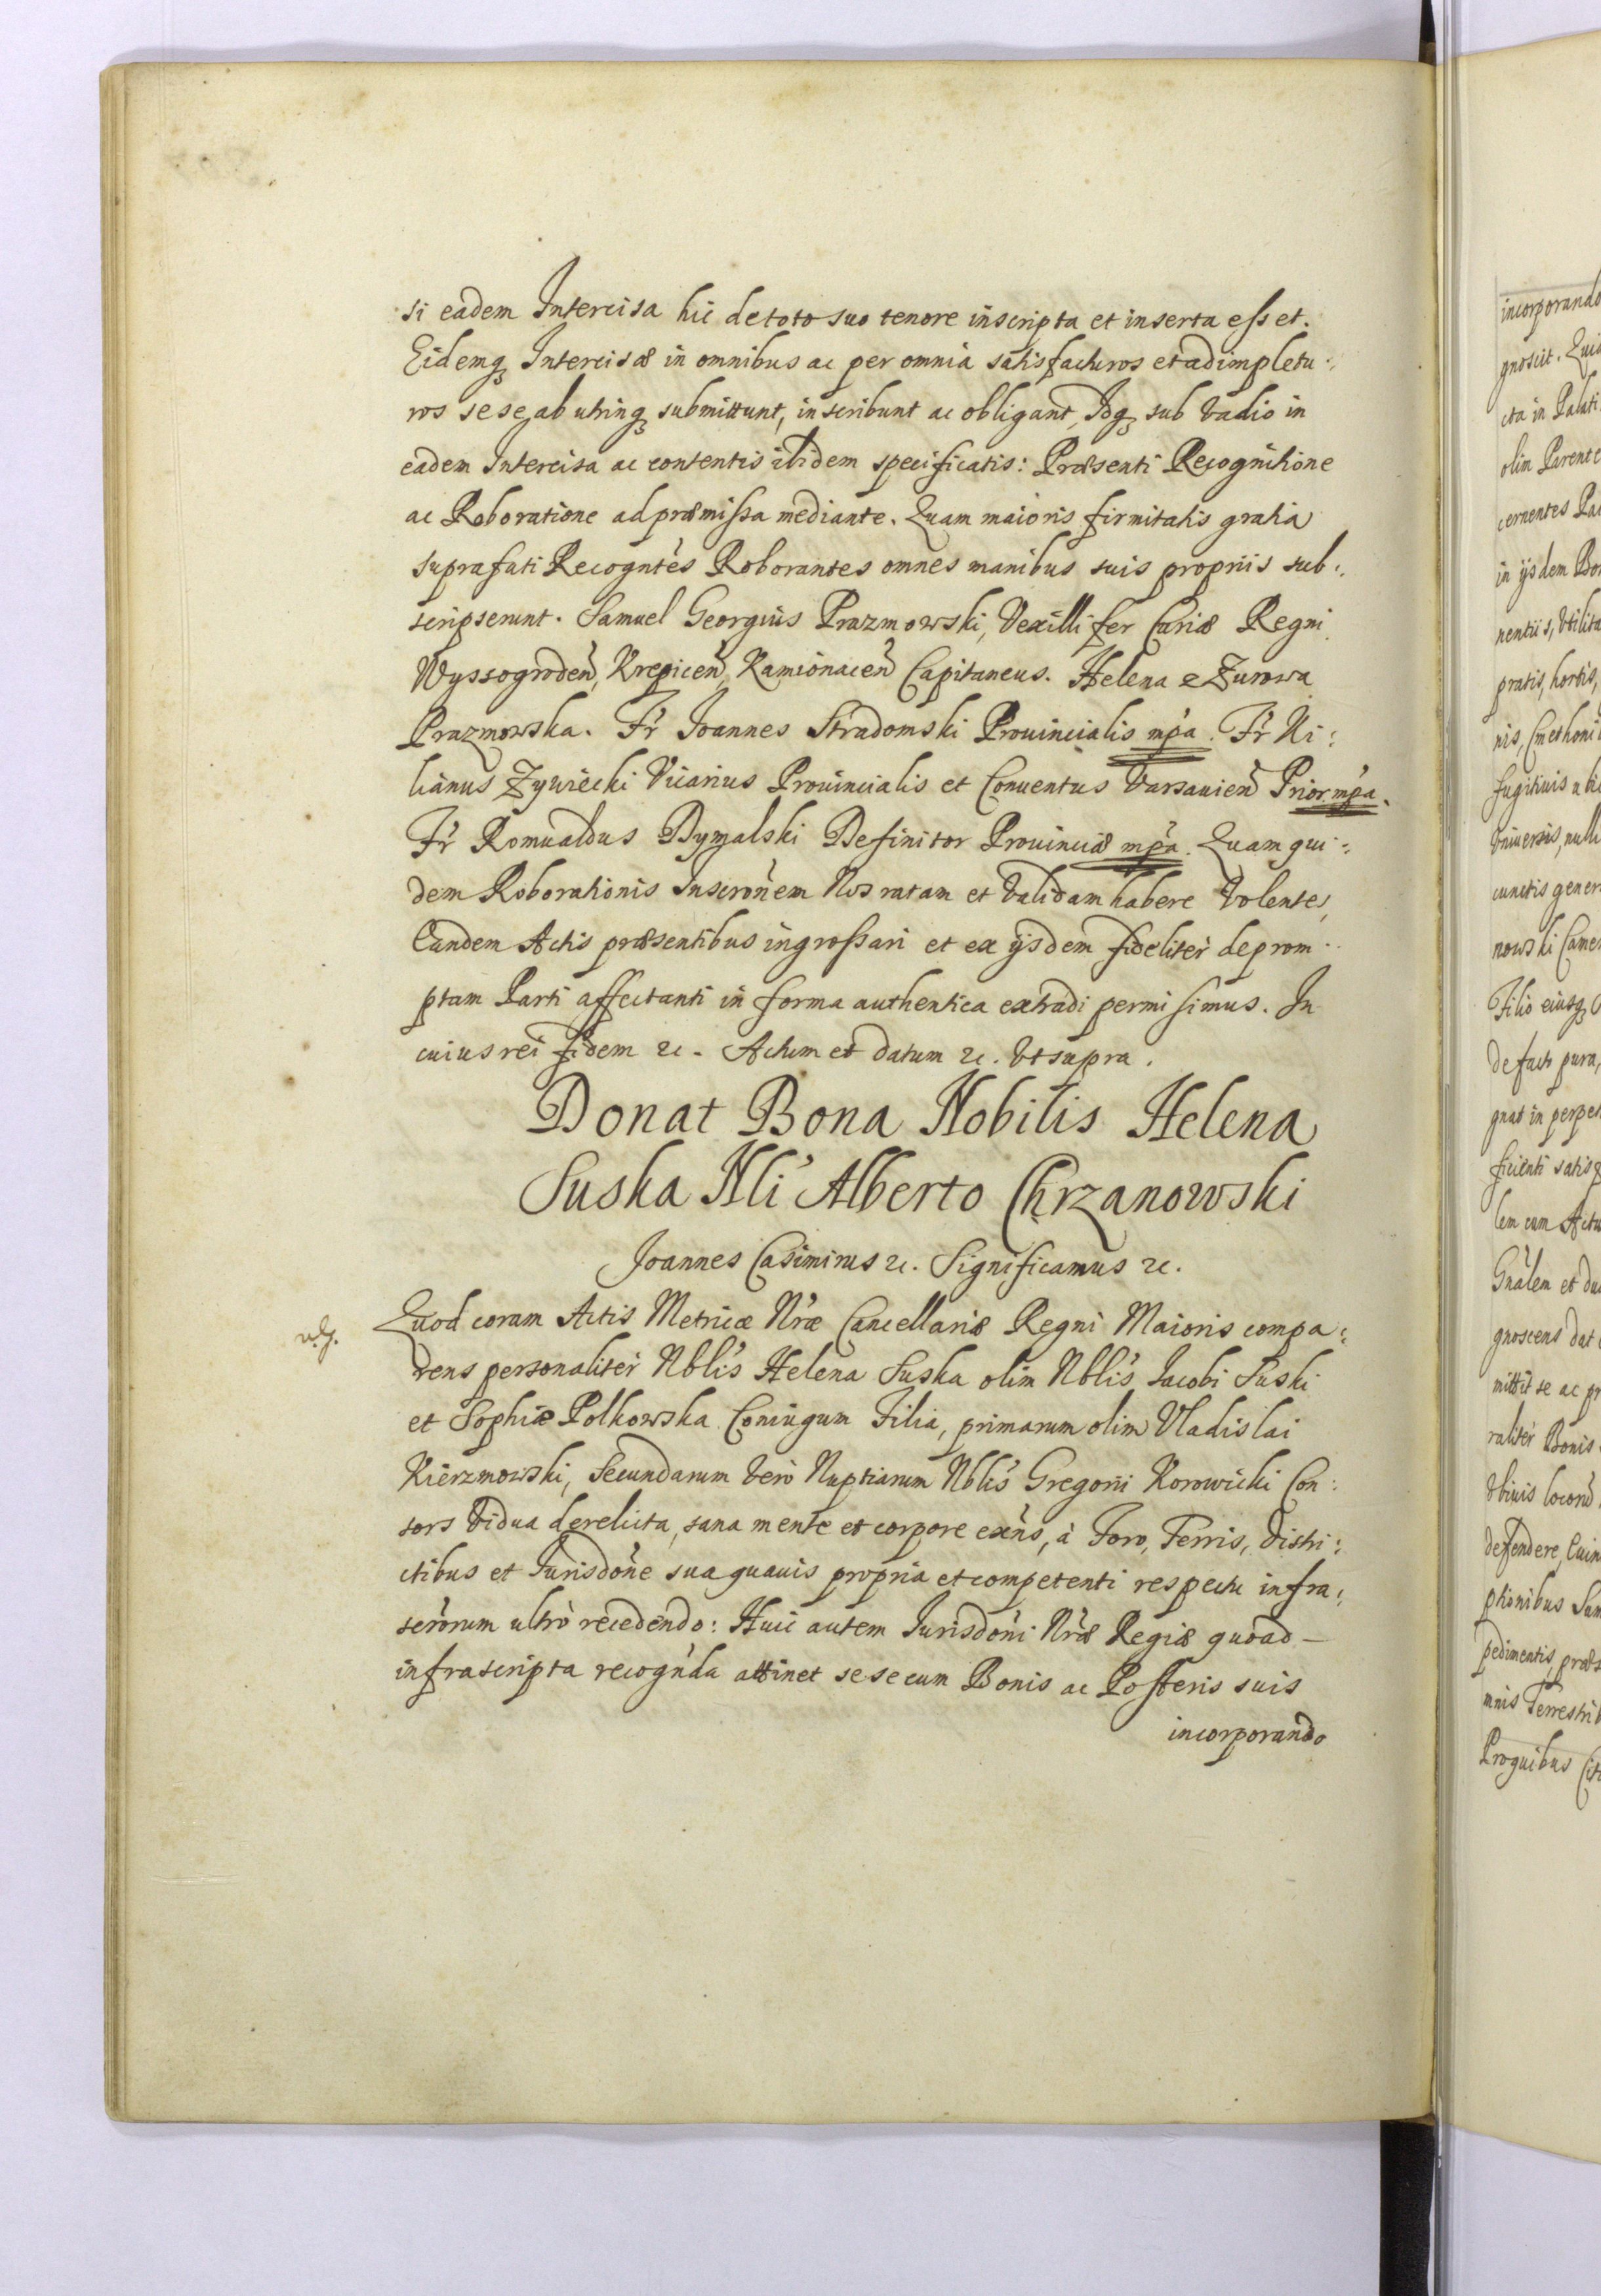 si eadem Intercisa hic de toto suo tenore inscripta et inserta esset.
Eidemq₃ Intercisæ in omnibus ac per omnia satisfacturos et adimpletu:
ros sese ab utrinq₃ submittunt, inscribunt ac obligant, Idq₃ sub Vadio in
eadem Intercisa ac contentis ibidem specificatis: Præsenti Recognitione
ac Roboratione ad præmissa mediante. Quam maioris firmitatis gratia
suprafati Recogntes Roborantes omnes manibus suis propriis sub:
scripserunt. Samuel Georgius Prazmowski, Vexillifer Curiæ Regni
Wyssogroden, Krepicen, Kamionacen Capitaneus. Helena z Zurowa
Prazmowska. Fr Joannes Stradomski Prouincialis mpa. Fr Ki:
lianus Zywiecki Vicarius Prouincialis et Conuentus Varsauien Prior mpa.
Fr Romualdus Dymalski Definitor Prouinciæ mpa. Quam qui:
dem Roborationis Inscronem Nos ratam et Validam habere Volentes,
Eandem Actis præsentibus ingrossari et ex ijsdem fideliter deprom:
ptam Parti affectanti in forma authentica extradi permisimus. In
cuius rei fidem &c. Actum et datum &c. Vt supra.
Donat Bona Nobilis Helena
Suska Nli Alberto Chrzanowski
Joannes Casimirus &c. Significamus &c.
Quod coram Actis Metricæ Nræ Cancellariæ Regni Maioris compa:
rens personaliter Nblis Helena Suska olim Nblis Jacobi Suski
et Sophiæ Polkowska Coniugum Filia, primarum olim Vladislai
Kierzmowski, Secundarum Vero Nuptiarum Nblis Gregorii Korowicki Con:
sors Vidua derelicta, sana mente et corpore exns, à Foro, Terris, Distri:
ctibus et Jurisdone sua quauis propria et competenti respectu infra:
scrorum ultrò recedendo: Huic autem Jurisdoni Nræ Regiæ quoad –
infrascripta recognda attinet sese cum Bonis ac Posteris suis
incorporando
incorporando
gnoscit.
cta in Palati
olim Parente
cernentes
in ijsdem
nentiis, Vtilita
pratis, hortis,
nis, Cmethoni
fugitiuis
Vniuersis, nulli
cunctis gener
nowski
Filio eiusq₃
de facto pura,
gnat in perpet
ficienti satis
lem cum Actu
Gnalem et
gnoscens dat
mittit se ac
raliter Bonis
Vbiuis locoru
defendere,
ptionibus
pedimentis, præs
mnis Terrestri
Proquibus